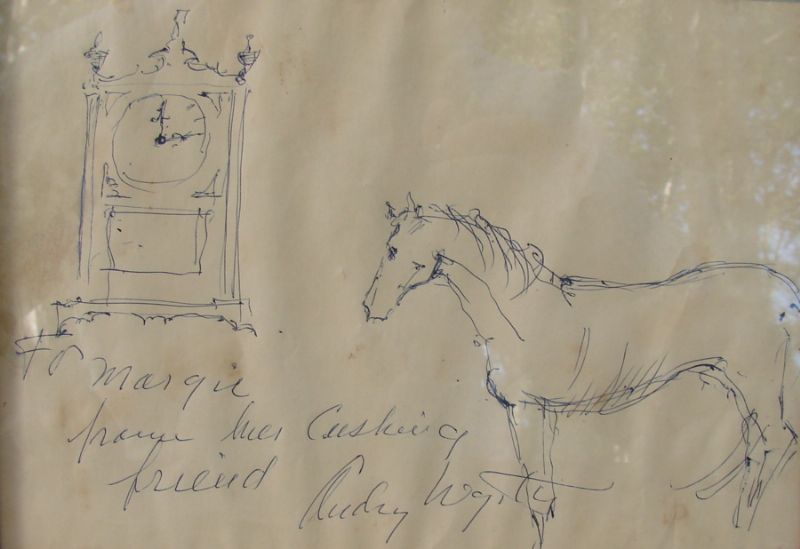 To Margie
from her Cushing
friend
Andy Wyeth